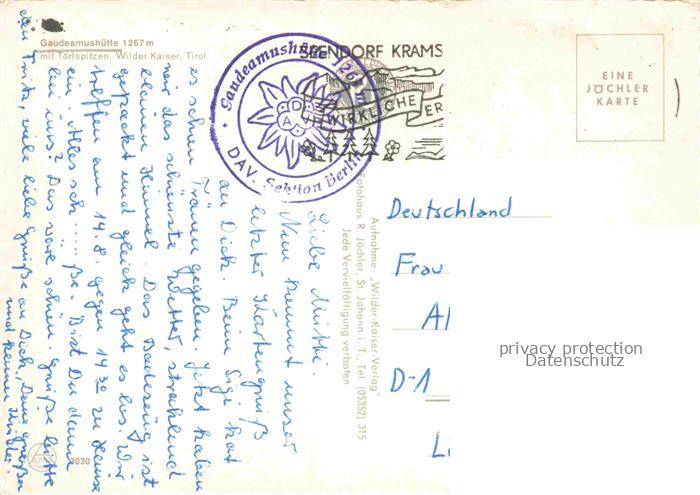 Gaudeamushütte 1267 m
mit Törlspitzen, Wilder Kaiser, Tirol
Gaudeamushütte 1267 m
DAV. Sektion Berlin
D A
SEENDORF KRAMS
WIRKLICHE ER
EINE
JÖCHLER
KARTE
Aufnahme: „Wilder-Kaiser-Verlag"
Fotohaus R. Jöchler, St. Johann i. T., Tel. (05352) 315
Jede Vervielfältigung verboten
Liebe Mutti.
Nun kommt unser
letzter Kartengruß
an Dich. Beim Sigi hat
es schon Tränen gegeben. Jetzt haben
wir das schönste Wetter, strahlend
blauen Himmel. Das Badezeug ist
gepackt und gleich geht es los. Wir
treffen am 19.8. gegen 19³⁰ zu Hause
ein. Alles sch.....ße. Bist Du dann
bei uns? Das wäre schön. Grüße bitte
den Fritz, viele liebe Grüße an Dich, Deine großen
und kleinen Kinder.
Deutschland
Frau
Al
D-1
L
3030
privacy protection
Datenschutz